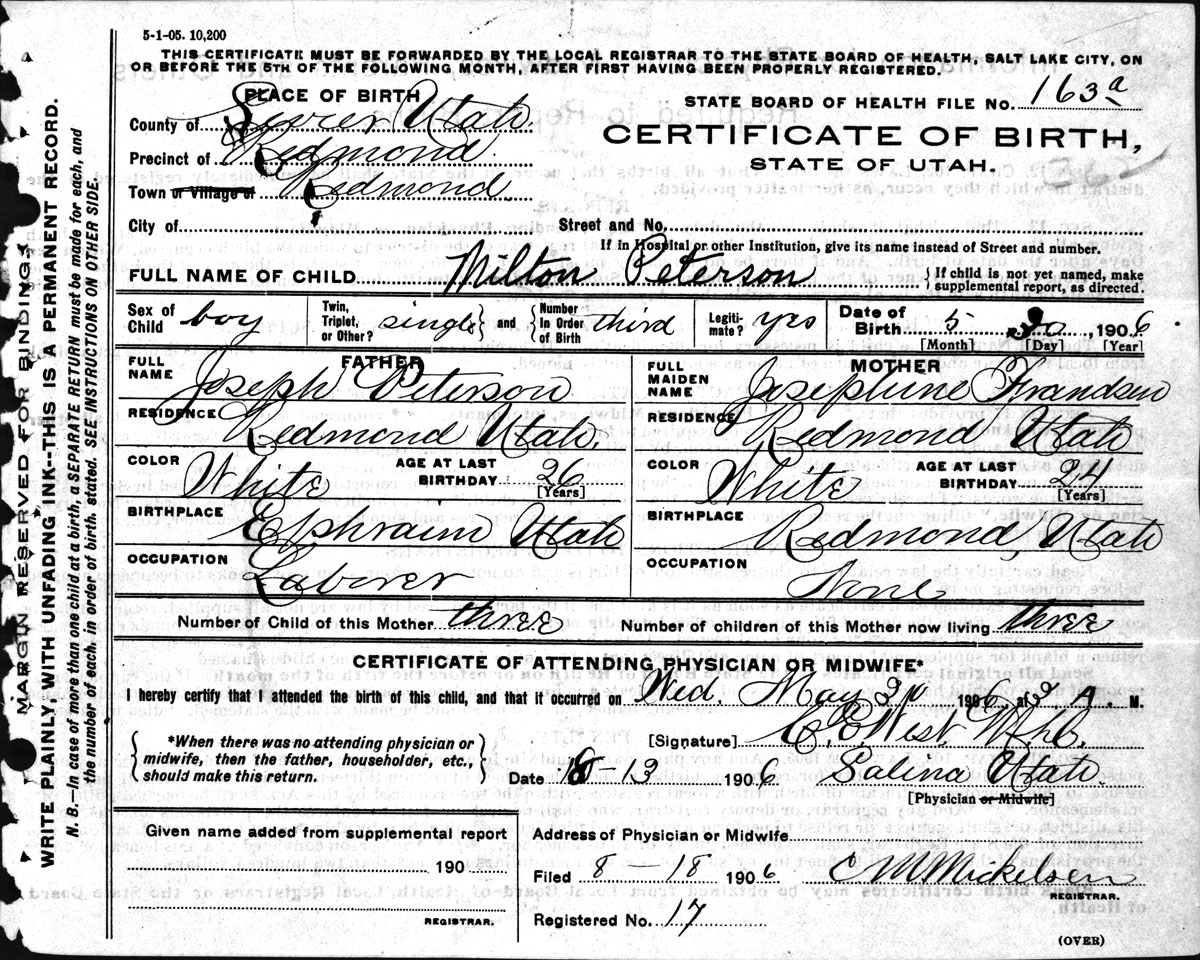 5-1-05. 10,200
THIS CERTIFICATE MUST BE FORWARDED BY THE LOCAL REGISTRAR TO THE STATE BOARD OF HEALTH, SALT LAKE CITY, ON
OR BEFORE THE 5TH OF THE FOLLOWING MONTH, AFTER FIRST HAVING BEEN PROPERLY REGISTERED.
PLACE OF BIRTH
STATE BOARD OF HEALTH FILE NO. 163a
County of Sevier Utah
CERTIFICATE OF BIRTH,
Precinct of Redmond
STATE OF UTAH.
Town or Village of Redmond
City of Street and No.
If in Hospital or other Institution, give its name instead of Street and number.
FULL NAME OF CHILD Milton Peterson { If child is not yet named, make supplemental report, as directed.
Sex of Child boy Twin, Triplet, or Other? single } and { Number In Order of Birth third Legiti-mate? yes Date of Birth 5 30, 1906
[Month] [Day] [Year]
FATHER MOTHER
FULL NAME Joseph Peterson FULL MAIDEN NAME Josephine Frandsen
RESIDENCE Redmond Utah. RESIDENCE Redmond Utah
COLOR White AGE AT LAST BIRTHDAY 26 [Years] COLOR White AGE AT LAST BIRTHDAY 24 [Years]
BIRTHPLACE Ephraim Utah BIRTHPLACE Redmond, Utah
OCCUPATION Laborer OCCUPATION None
Number of Child of this Mother three Number of children of this Mother now living three
CERTIFICATE OF ATTENDING PHYSICIAN OR MIDWIFE*
I hereby certify that I attended the birth of this child, and that it occurred on Wed. May 30 1906, at A. M.
{ *When there was no attending physician or midwife, then the father, householder, etc., should make this return. }
[Signature] West
Date 13 1906 Salina Utah.
[Physician or Midwife]
Given name added from supplemental report
190
REGISTRAR.
Address of Physician or Midwife
Filed 8 - 18 1906 Mickelsen
REGISTRAR.
Registered No. 17
(OVER)
MARGIN RESERVED FOR BINDING.
WRITE PLAINLY, WITH UNFADING INK--THIS IS A PERMANENT RECORD.
N. B.—In case of more than one child at a birth, a SEPARATE RETURN must be made for each, and
the number of each, in order of birth, stated. SEE INSTRUCTIONS ON OTHER SIDE.